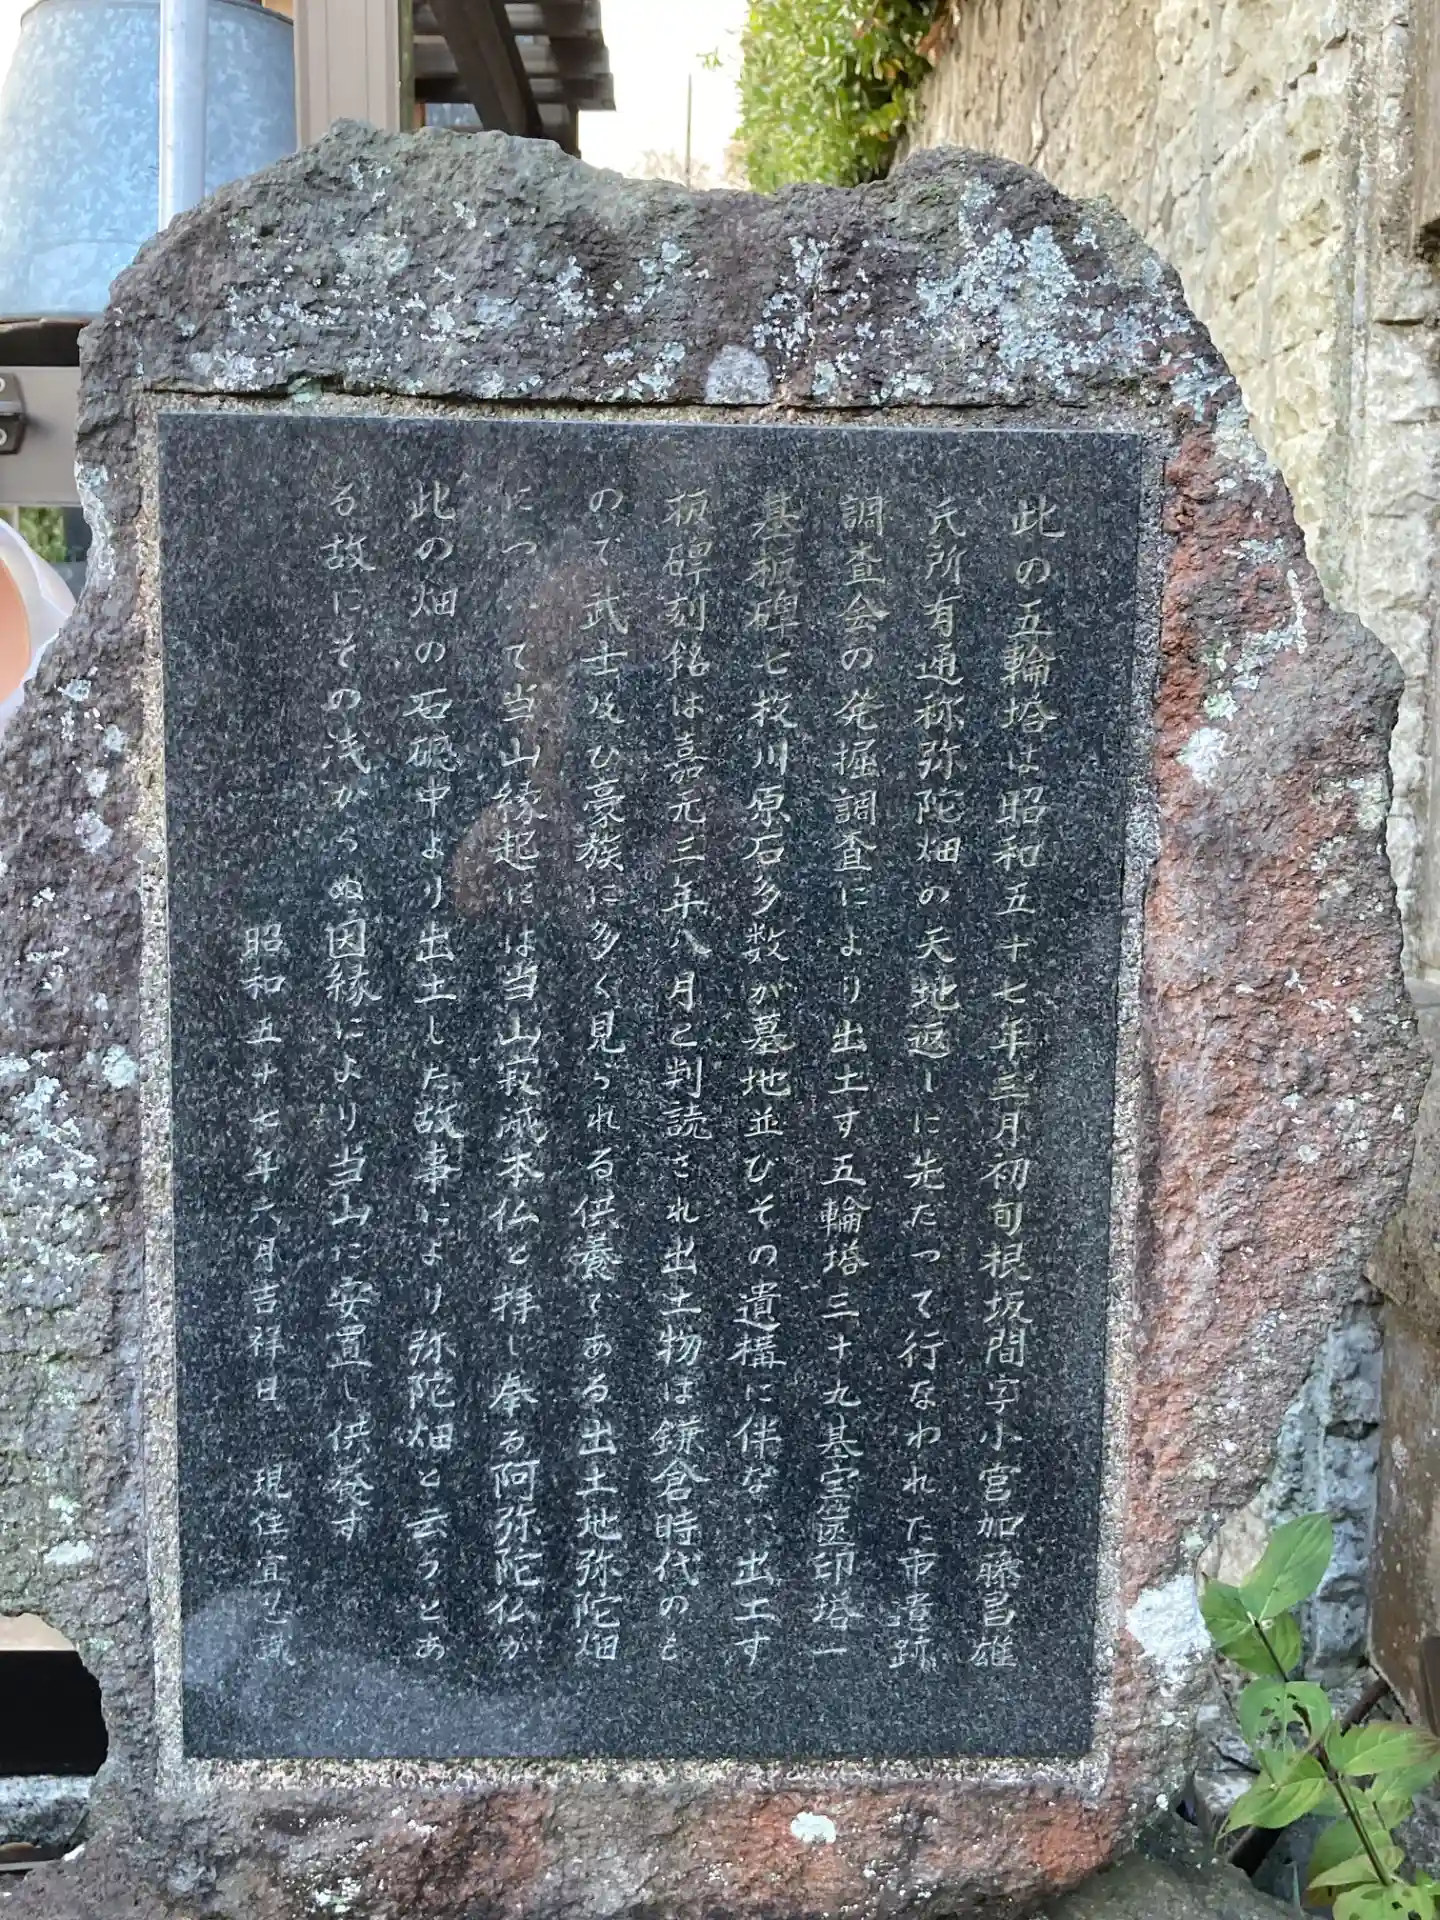 此の五輪塔は昭和五十七年三月初旬根坂間字小宮加藤昌雄
氏所有通称弥陀畑の天地返しに先たって行なわれた市遺跡
調査会の発掘調査により出土す五輪塔三十九基宝篋印塔一
基板碑七枚川原石多数が墓地並びその遺構に伴ない出土す
板碑刻銘は嘉元三年八月と判読され出土物は鎌倉時代のも
ので武士及ひ豪族に多く見られる供養である出土地弥陀畑
について当山縁起には当山寂滅本仏と拝し奉る阿弥陀仏が
此の畑の石礎中より出土した故事により弥陀畑と云うとあ
る故にその浅からぬ因縁により当山に安置し供養す
昭和五十七年六月吉祥日 現住宣 識